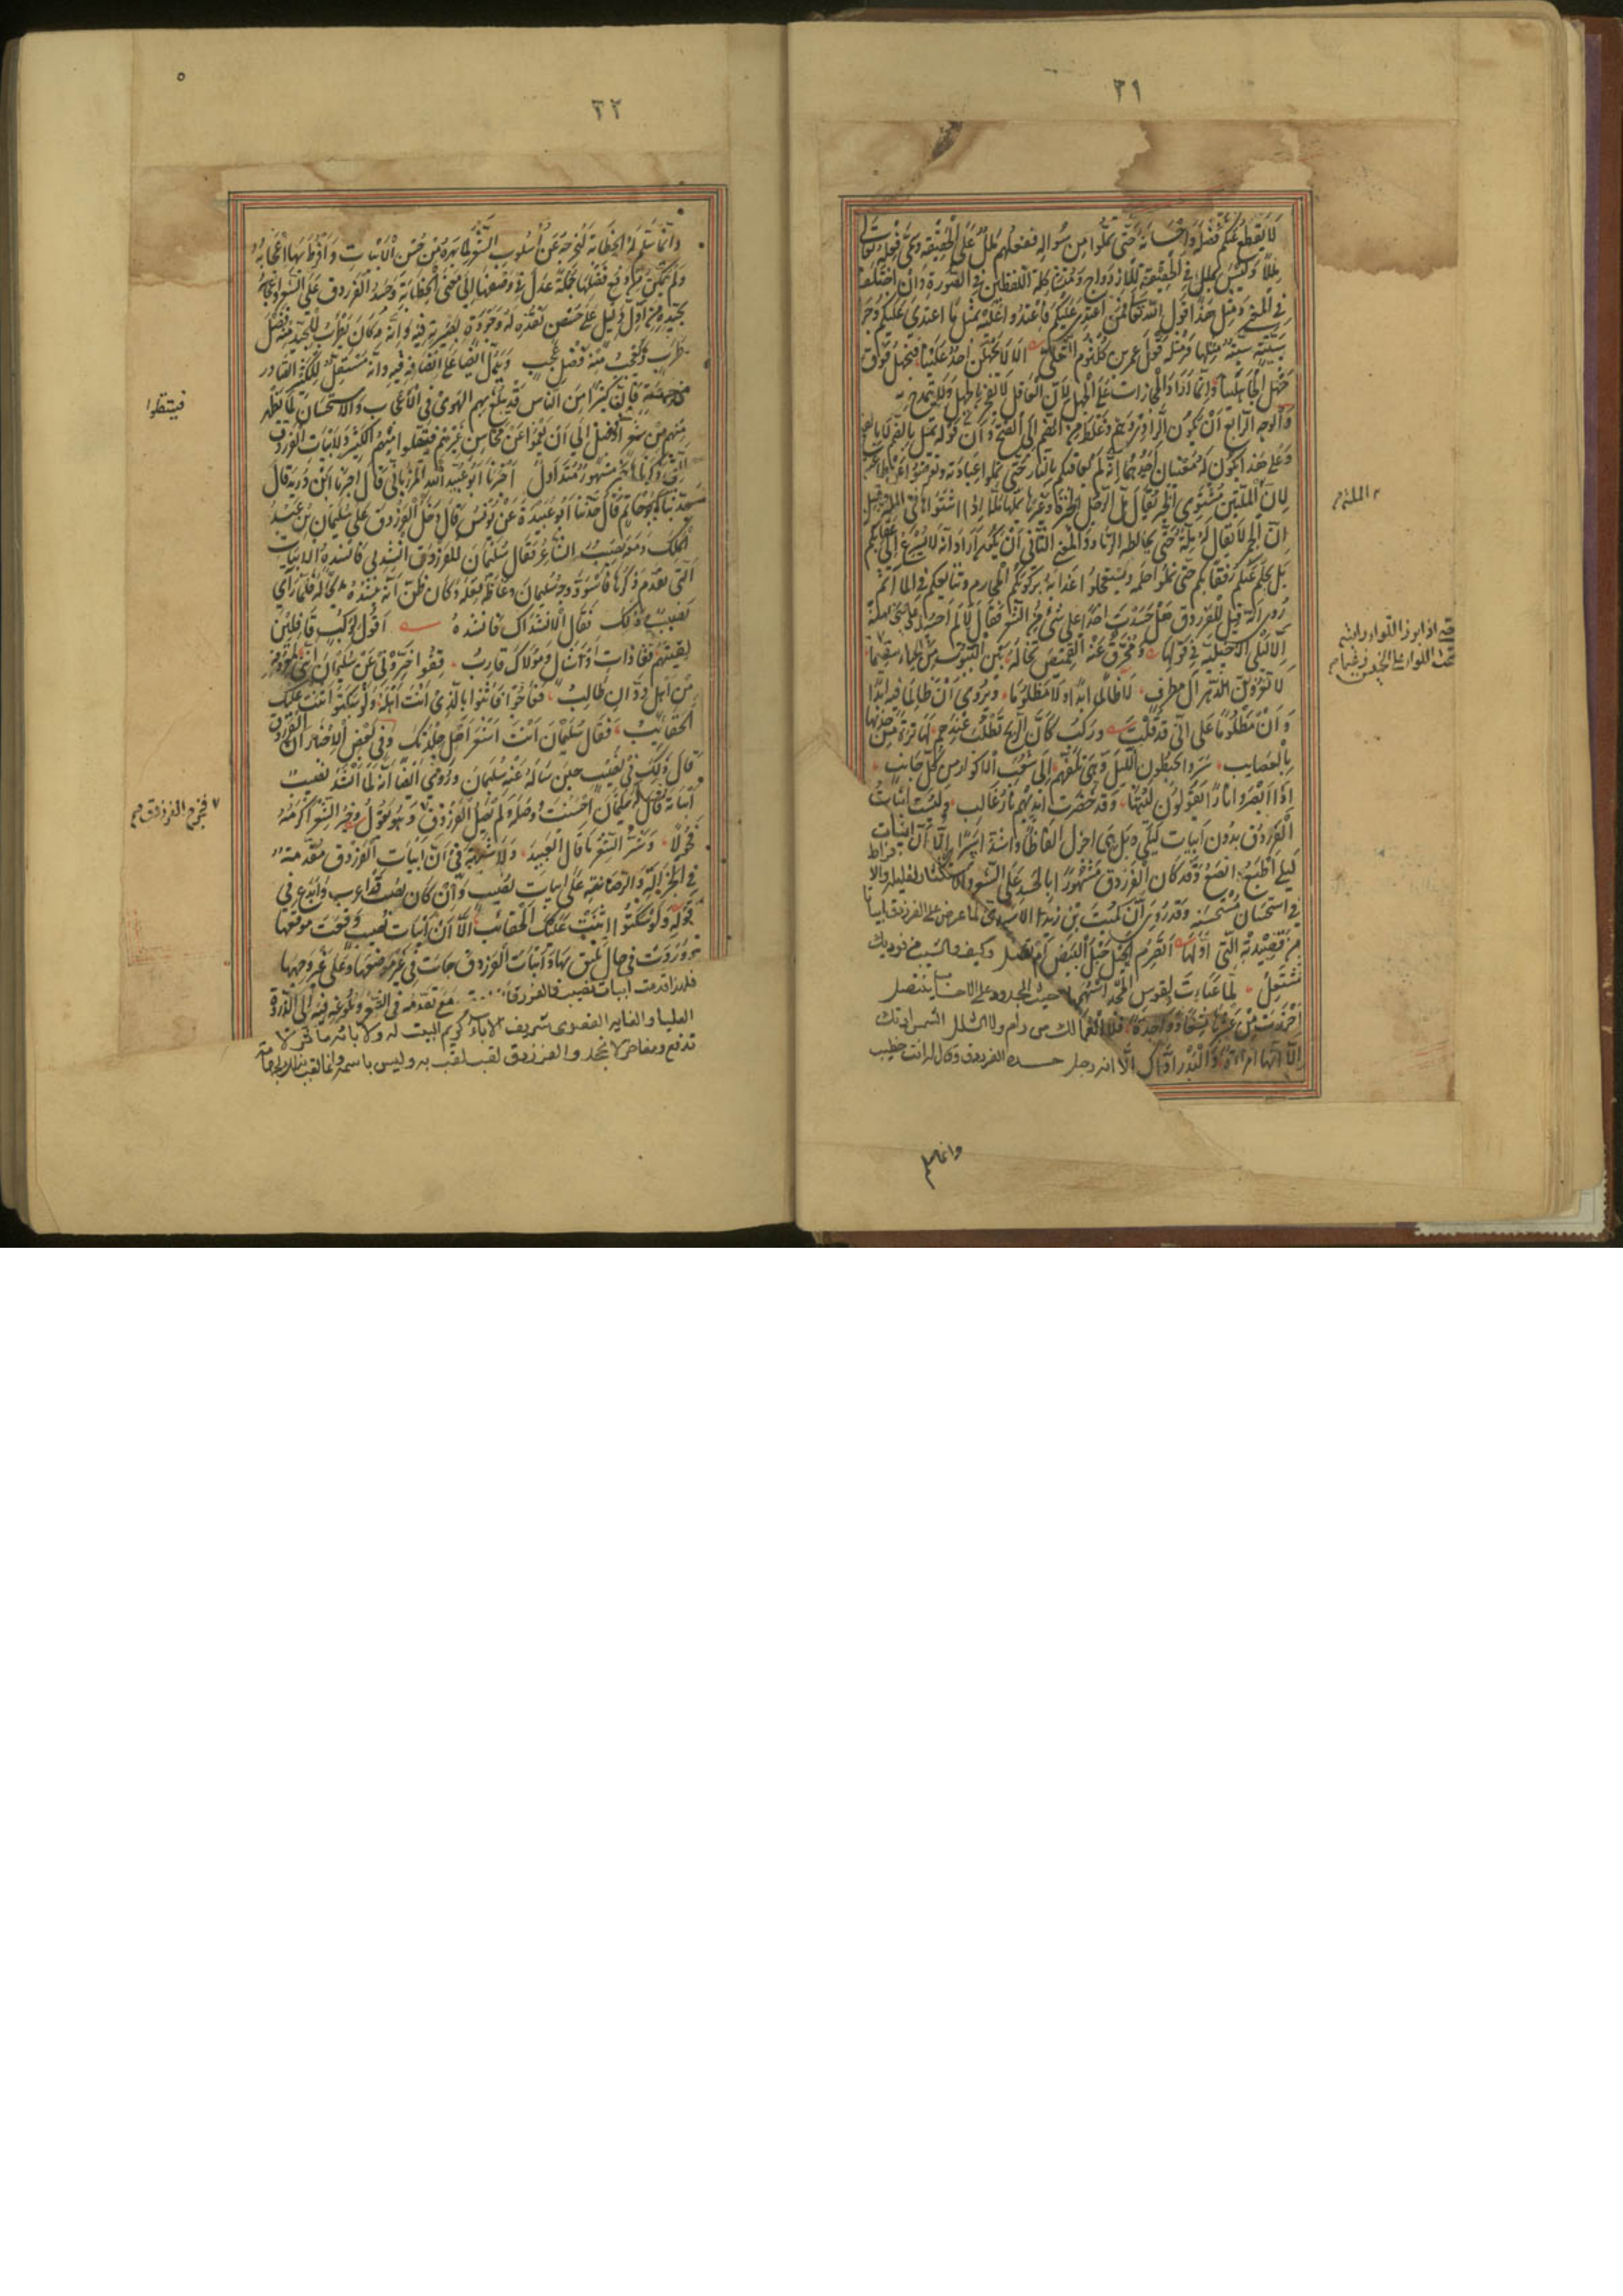 ٣١
لا يقطع عنكم فضله واحسانه حتى تملوا من سؤاله ففعلهم ملل على الحقيقة وسمى فعله تعالى
مللا وليس بملل في الحقيقة للازدواج ومشاكلة اللفظين في الصورة وان اختلفا
في المعنى ومثل هذا قول الله تعالى فمن اعتدى عليكم فاعتدوا عليه بمثل ما اعتدى عليكم وجزاء
سيئة سيئة مثلها ومثله قول عمرو بن كلثوم التغلبي الا لا يجهلن احد علينا فنجهل فوق
جهل الجاهلينا وانما اراد المجازات على الجهل لان العاقل لا يفخر بالجهل ولا يتمدح به
والوجه الرابع ان يكون الراوي وهم وغلط من الضم الى الفتح وان قوله يمل بالضم لا بالفتح
وعلى هذا يكون له معنيان احدهما انه لا يعاقبكم بالنار حتى تملوا عبادته وتعرضوا عن طاعته
لان الملة مشتوى الخبز يقال مل الرجل الخبزة وغيرها يملها ملا اذا اشتواها في الملة وقيل
ان الجمر لا يقال له ملة حتى يخالطه الرماد والمعنى الثاني ان يكون اراد انه لا يسرع الى عقابكم
بل يحلم عنكم ويتأنى بكم حتى تملوا حلمه وتستعجلوا عذابه بركوبكم المحارم وتتابعكم في المآثم
روى انه قيل للفرزدق هل حسدت احدا على شئ من الشعر فقال لا لم احسد على شئ منه
الا ليلى الاخيلية في قولها ومخرق عنه القميص تخاله بين البيوت من الحياء سقيما
لا تقربن الدهر آل مطرف لا ظالما ابدا ولا مظلوما ويروى ان ظالما فيهم ابدا
وان مظلوما على اني قد قلت وركب كأن الريح تطلب عندهم لها ترة من جذبها
بالعصايب سروا يخبطون الليل وهي تلفهم الى شعب الاكوار من كل جانب
اذا ابصروا نارا يقولون ليتها وقد خصرت ايديهم نار غالب وليست ابيات
الفرزدق بدون ابيات ليلى بل هي اجزل الفاظا واشد اسرا الا ان ابيات
ليلى اطبع وانصع وقد كان الفرزدق مشهورا بالحسد على الشعر والاستكثار لقليله والافراط
في استحسان مستحسنه وقد روى ان كميت بن زيد الاسدي لما عرض على الفرزدق ابياتا
من قصيدته التي اولها اتصرم الحبل حبل البيض ام تصل وكيف والشيب في فوديك
مشتعل لما عبأت لقوس المجد اسهمها حيث الجدود على الاحساب ينتضل
احرزت من عشرها تسعا وواحدة فلا العمى لك من رام ولا الشلل الشمس ادتك
الا انها امراءة والبدر اداك الا انه رجل حسده الفرزدق وقال له انت خطيب
الملة م
وانما سلم
٥
٣٢
وانما سلم له الخطابة ليخرجه عن اسلوب الشعر لما بهره من حسن الابيات وافرط بها اعجابه
ولم يتمكن من دفع فضلها جملة عدل في وصفها الى معنى الخطابة وحسد الفرزدق على الشعر واعجابه
بجيده من ادل دليل على حسن نقده له وجودة بصيرته فيه وانه كان يطرب للجيد منه فضل
طرب ويعجب منه فضل عجب ويدل ايضا على انصافه فيه وانه مستقل للكثير الصادر
من جهته فان كثيرا من الناس قد يبلغ بهم الهوى في الاعجاب والاستحسان لما يظهر
منهم من شعر او فضل الى ان يعموا عن محاسن غيرهم فيستقلوا منهم الكثير ولابيات الفرزدق
التي ذكرناها خبر مشهور متداول اخبرنا ابو عبيد الله المرزباني قال اخبرنا ابن دريد قال
حدثنا ابو حاتم قال حدثنا ابو عبيدة عن يونس قال دخل الفرزدق على سليمان بن عبد
الملك ومعه نصيب الشاعر فقال سليمان للفرزدق انشدني فانشده الابيات
التي تقدم ذكرها فاسود وجه سليمان وغاظه فعله وكان ظن انه ينشده مديحا له فلما رأى
نصيب ذلك فقال الا انشدك فانشده اقول لركب قافلين
لقيتهم قفا ذات اوشال ومولاك قارب قفوا خبروني عن سليمان اني لمعروفه
من اهل ودان طالب فعاجوا فاثنوا بالذي انت اهله ولو سكتوا اثنت عليك
الحقايب فقال سليمان انت اشعر اهل جلدتك وفي بعض الاخبار ان الفرزدق
قال ذلك في نصيب حين سأله عنه سليمان وروي ايضا انه لما انشد نصيب
ابياته قال له سليمان احسنت ووصله ولم يصل الفرزدق وهو يقول وخير الشعر اكرمه
رجالا وشر الشعر ما قال العبيد ولا شبهة في ان ابيات الفرزدق مقدمة
في الجزالة والرصانة على ابيات نصيب وان كان نصيب قد اعرب وابدع في
قوله ولو سكتوا اثنت عليك الحقائب الا ان ابيات نصيب وقعت موقعها
ووردت في حال تليق بها وابيات الفرزدق جاءت في غير موضعها وعلى غير وجهها
فلهذا قدمت ابيات نصيب مع تقدمه في الشعر وبلوغه فيه الى الذروة
العليا والغاية القصوى شريف الاباء كريم البيت له ولابائه مآثر لا
تدفع ومفاخر لا تجحد والفرزدق لقب لقب به وليس باسمه وانما لقب بذلك لجهامة
فيستقلوا
فخرج الفرزدق صح